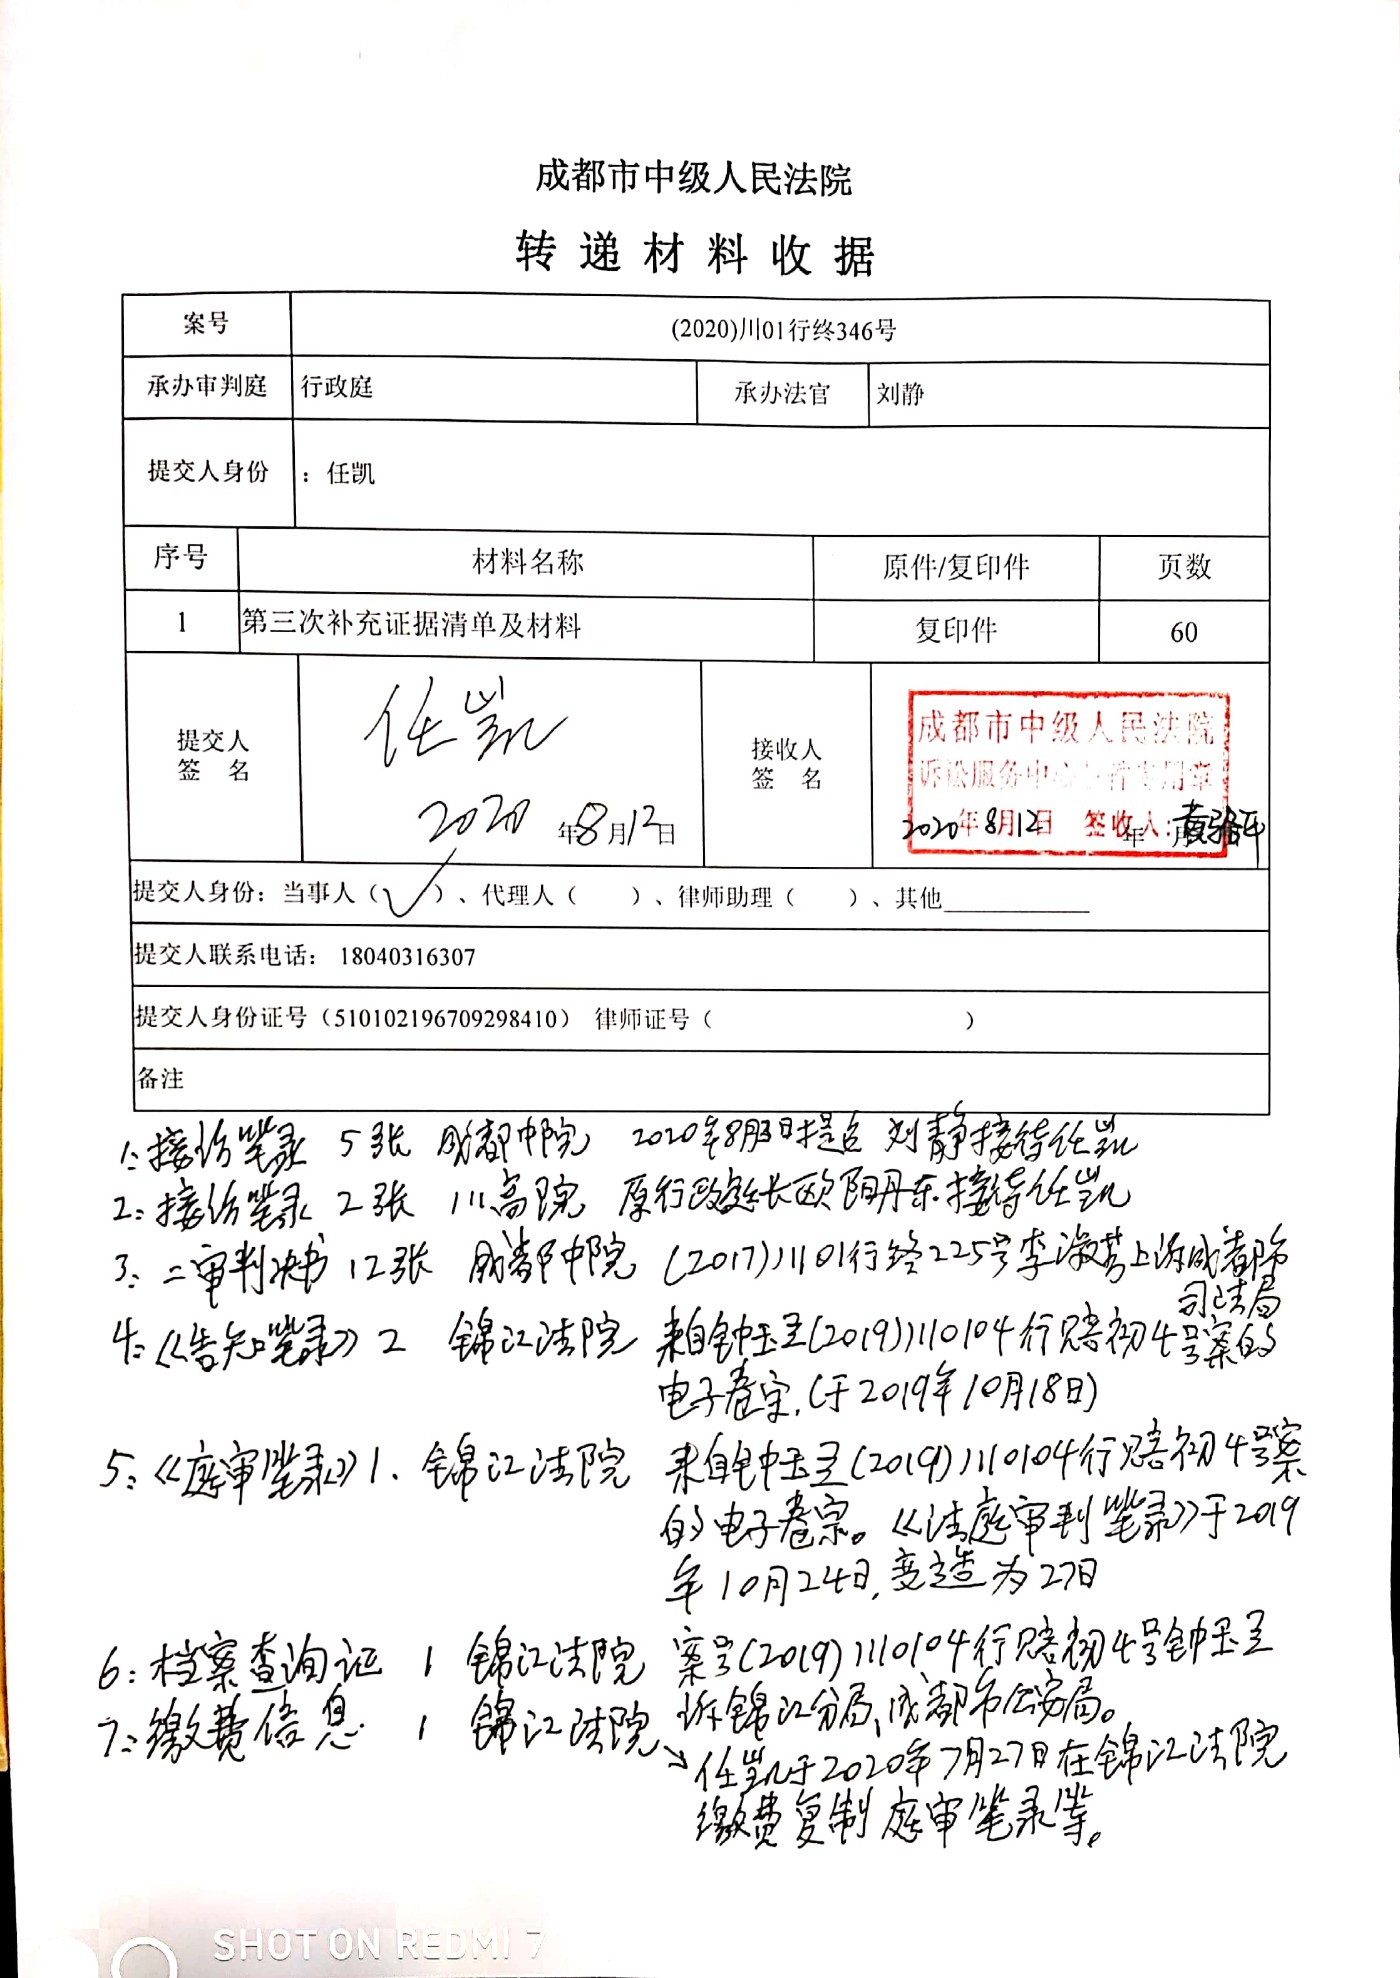 成都市中级人民法院
转递材料收据
案号 (2020)川01行终346号
承办审判庭 行政庭 承办法官 刘静
提交人身份 ：任凯
序号 材料名称 原件/复印件 页数
1 第三次补充证据清单及材料 复印件 60
提交人
签 名
任凯
2020年8月12日
接收人
签 名
成都市中级人民法院
诉讼服务中心 专用章
2020年8月12日 签收人：黄
年 月
提交人身份：当事人（√）、代理人（ ）、律师助理（ ）、其他
提交人联系电话： 18040316307
提交人身份证号（510102196709298410） 律师证号（ ）
备注
1：接访笔录 5张 成都中院 2020年8月3日提名 刘静接待任凯
2：接访笔录 2张 川高院 原行政庭长欧阳丹东接待任凯
3：二审判决书 12张 成都中院 (2017)川01行终225号李淑芳上诉成都市
司法局
4：《告知笔录》2 锦江法院 来自钟玉呈(2019)川0104行赔初4号案的
电子卷宗，(于2019年10月18日)
5：《庭审笔录》1、锦江法院 来自钟玉呈(2019)川0104行赔初4号案
的电子卷宗。《法庭审判笔录》于2019
年10月24日，变造为27日
6：档案查询证 1 锦江法院 案号(2019)川0104行赔初4号钟玉呈
诉锦江分局、成都市公安局。
7：缴费信息 1 锦江法院
任凯于2020年7月27日在锦江法院
缴费复制庭审笔录等。
SHOT ON REDMI 7